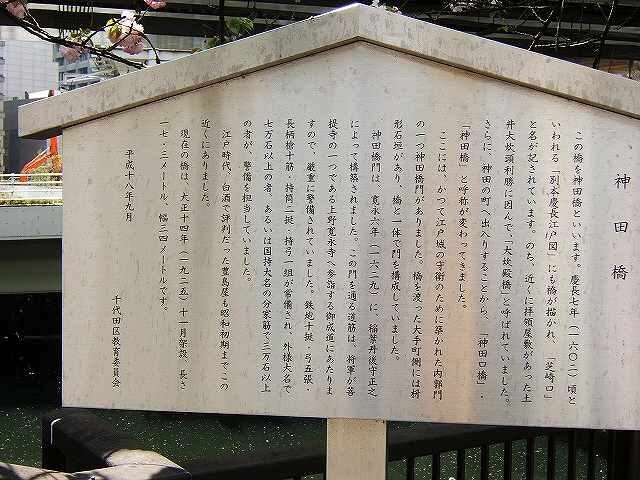 神田橋
この橋を神田橋といいます。慶長七年(一六〇二)頃と
いわれる「別本慶長江戸図」にも橋が描かれ、「芝崎口」
と名が記されています。のち、近くに拝領屋敷があった土
井大炊頭利勝に因んで、「大炊殿橋」と呼ばれていました。
さらに、神田の町へ出入りすることから、「神田口橋」・
「神田橋」と呼称が変わってきました。
ここには、かつて江戸城の守衛のために築かれた内郭門
の一つ神田橋門がありました。橋を渡った大手町側には枡
形石垣があり、橋と一体で門を構成していました。
神田橋門は、寛永六年(一六二九)に、稲葉丹後守正之
によって構築されました。この門を通る道筋は、将軍が菩
提寺の一つである上野寛永寺へ参詣する御成道にあたりま
すので、厳重に警備されていました。鉄炮十挺・弓五張・
長柄槍十筋・持筒二挺・持弓一組が常備され、外様大名で
七万石以上の者、あるいは国持大名の分家筋で三万石以上
の者が、警備を担当していました。
江戸時代、白酒で評判だった豊島屋も昭和初期まで、この
近くにありました。
現在の橋は、大正十四年(一九二五)十一月架設、長さ
一七・三メートル、幅三四メートルです。
平成十八年九月
千代田区教育委員会